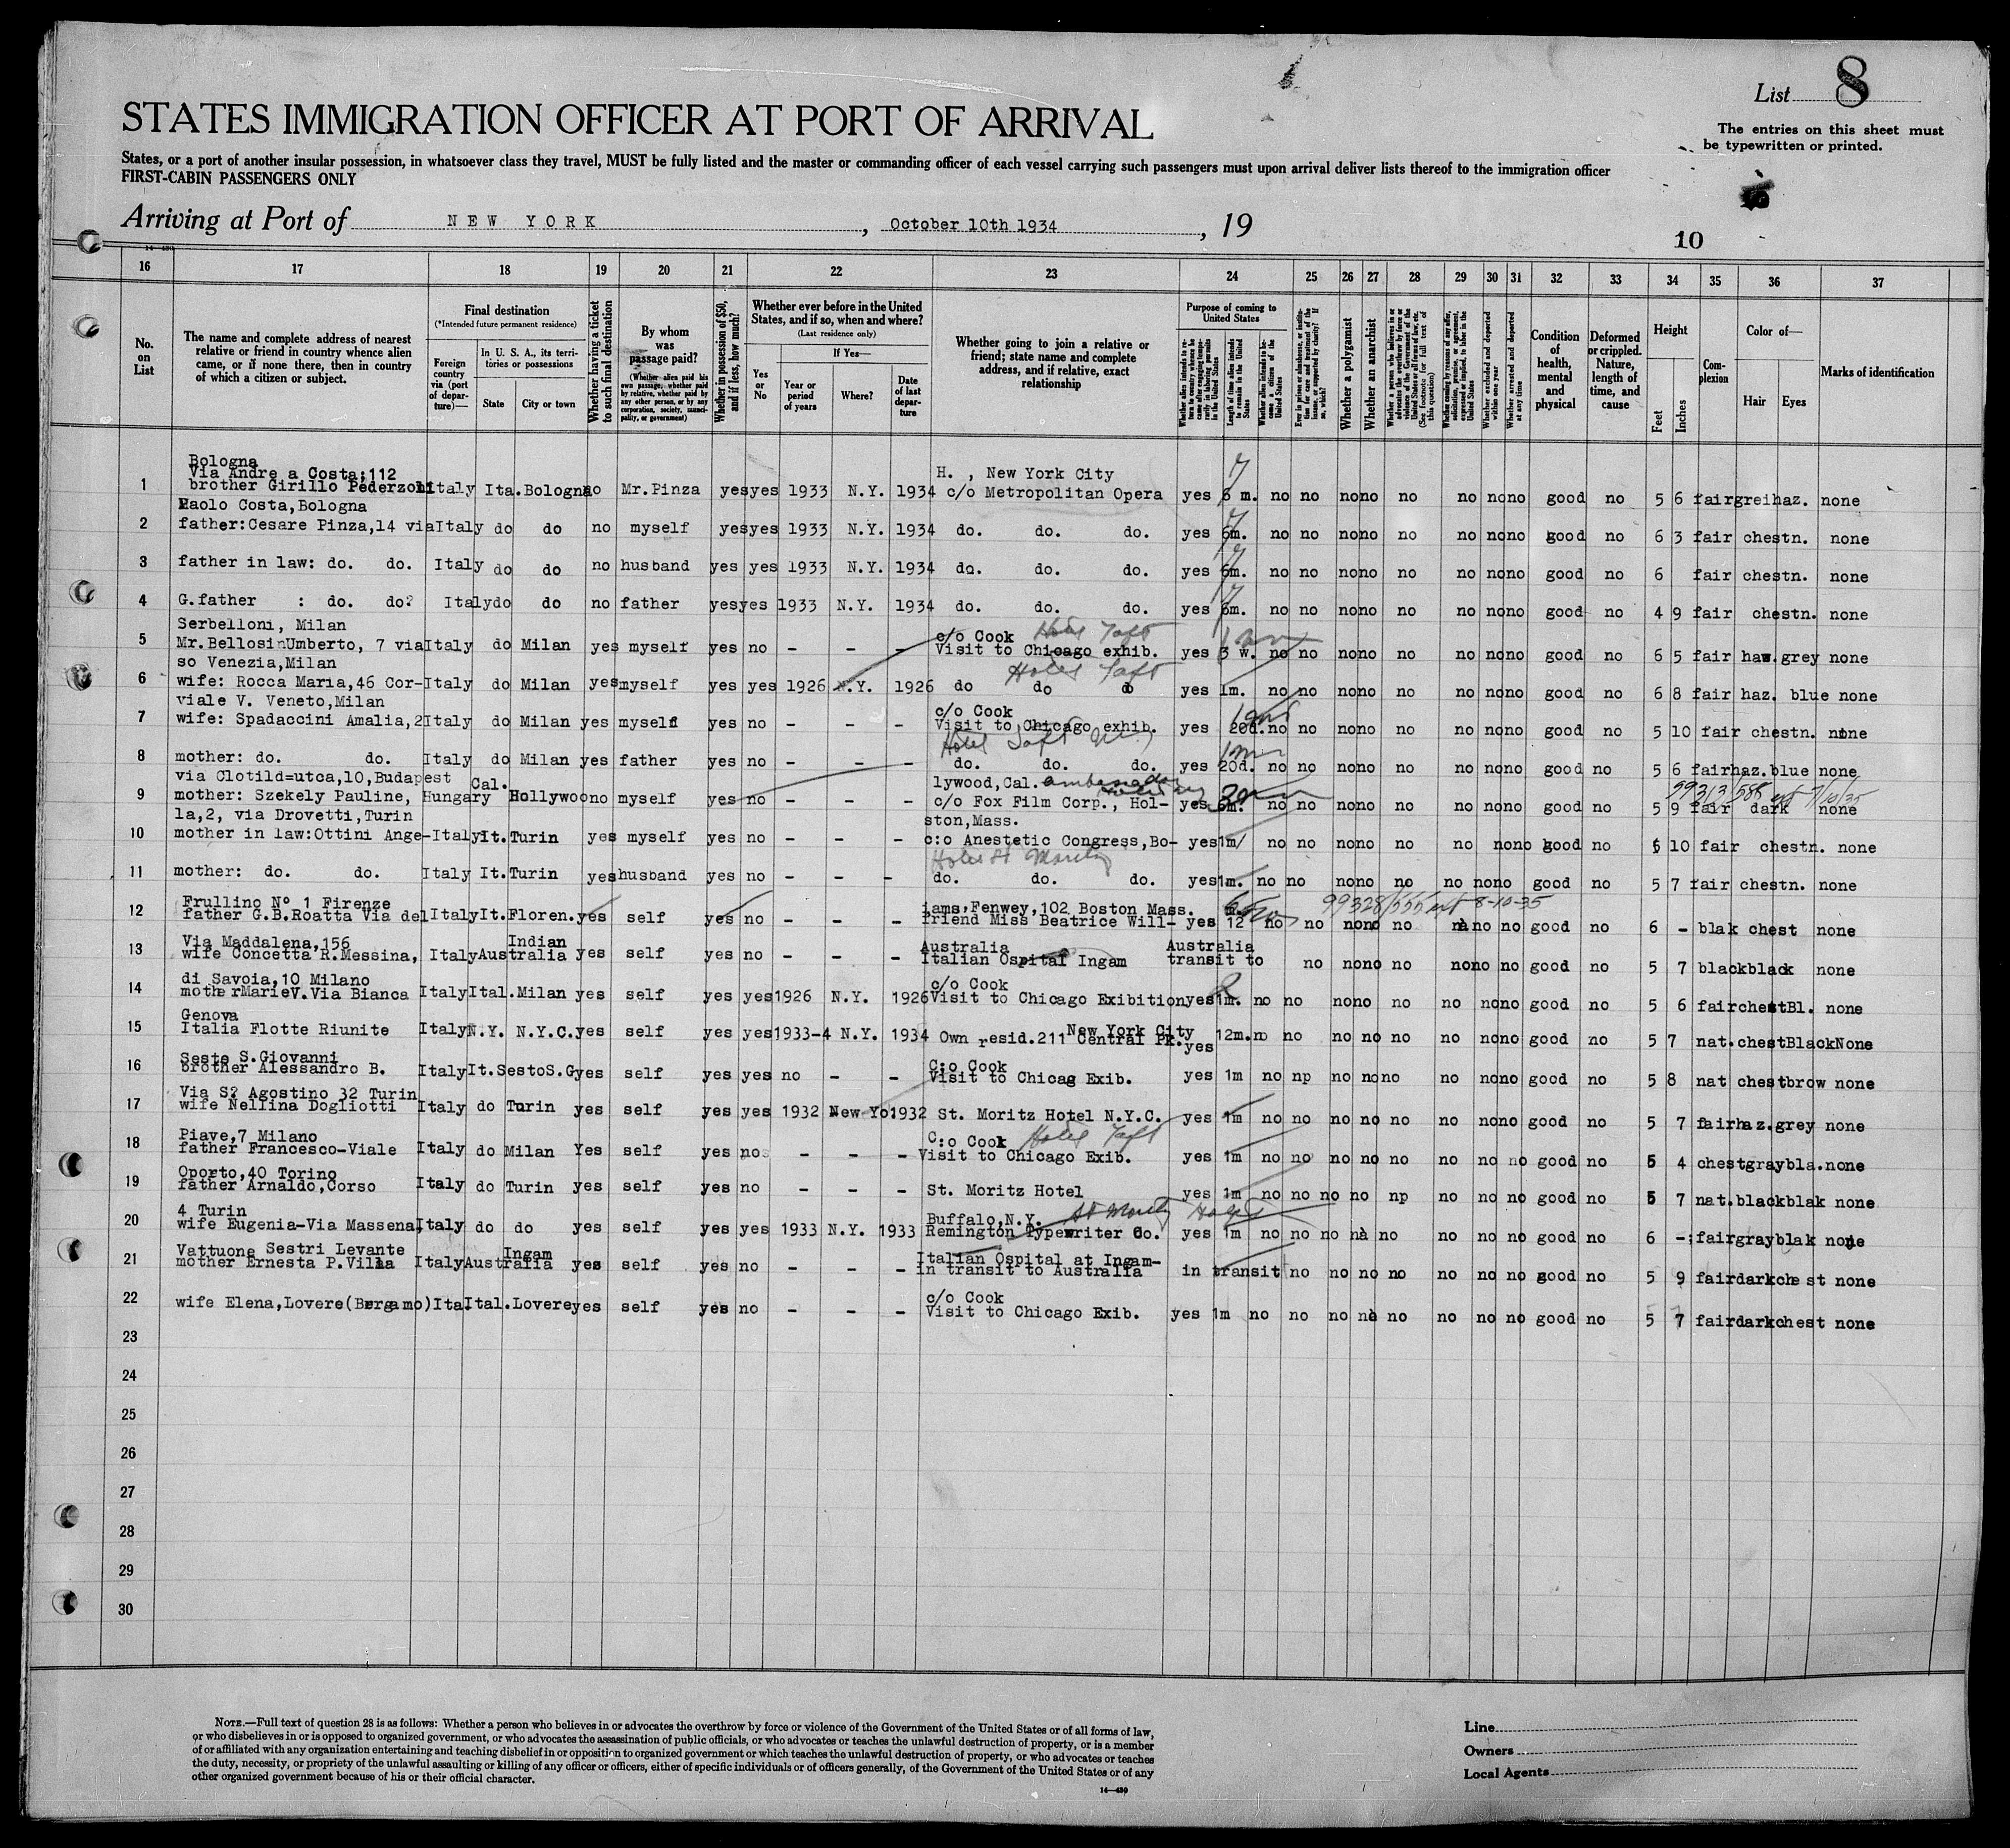 List 8
STATES IMMIGRATION OFFICER AT PORT OF ARRIVAL
The entries on this sheet must
be typewritten or printed.
States, or a port of another insular possession, in whatsoever class they travel, MUST be fully listed and the master or commanding officer of each vessel carrying such passengers must upon arrival deliver lists thereof to the immigration officer
FIRST-CABIN PASSENGERS ONLY
Arriving at Port of NEW YORK, October 10th 1934, 19
10
16 17 18 19 20 21 22 23 24 25 26 27 28 29 30 31 32 33 34 35 36 37
No. on List
The name and complete address of nearest relative or friend in country whence alien came, or if none there, then in country of which a citizen or subject.
Final destination
(*Intended future permanent residence)
Foreign country via (port of departure)—
In U. S. A., its territories or possessions
State
City or town
Whether having a ticket to such final destination
By whom was passage paid?
(Whether alien paid his own passage, whether paid by relative, whether paid by any other person, or by any corporation, society, municipality, or government)
Whether in possession of $50, and if less, how much?
Whether ever before in the United States, and if so, when and where?
(Last residence only)
Yes or No
If Yes—
Year or period of years
Where?
Date of last departure
Whether going to join a relative or friend; state name and complete address, and if relative, exact relationship
Purpose of coming to United States
Length of time alien intends to remain in the United States
Whether alien intends to become a citizen of the United States
Whether a polygamist
Whether an anarchist
(See footnote for full text of this question)
Whether excluded and deported within one year
Whether arrested and deported at any time
Condition of health, mental and physical
Deformed or crippled. Nature, length of time, and cause
Height
Feet
Inches
Complexion
Color of—
Hair
Eyes
Marks of identification
Bologna
Via Andre a Costa;112 H. , New York City 7
1 brother Girillo Pederzoni Italy Ita. Bologna no Mr.Pinza yes yes 1933 N.Y. 1934 c/o Metropolitan Opera yes 6 m. no no no no no no no no good no 5 6 fair grei haz. none
Paolo Costa,Bologna 7
2 father:Cesare Pinza,14 via Italy do do no myself yes yes 1933 N.Y. 1934 do. do. do. yes 6m. no no no no no no no no good no 6 3 fair chestn. none
3 father in law: do. do. Italy do do no husband yes yes 1933 N.Y. 1934 do. do. do. yes 6m. no no no no no no no no good no 6 fair chestn. none
4 G.father : do. do? Italy do do no father yes yes 1933 N.Y. 1934 do. do. do. yes 6m. no no no no no no no no good no 4 9 fair chestn. none
Serbelloni, Milan c/o Cook Hotel Taft
5 Mr.Bellosin Umberto, 7 via Italy do Milan yes myself yes no - - - Visit to Chicago exhib. yes 3 w. no no no no no no no no good no 6 5 fair haw. grey none
so Venezia,Milan Hotel Taft
6 wife: Rocca Maria,46 Cor- Italy do Milan yes myself yes yes 1926 N.Y. 1926 do do do yes 1m. no no no no no no no no good no 6 8 fair haz. blue none
viale V. Veneto,Milan c/o Cook
7 wife: Spadaccini Amalia,2 Italy do Milan yes myself yes no - - - Visit to Chicago exhib. yes 20d. no no no no no no no no good no 5 10 fair chestn. none
Hotel Taft
8 mother: do. do. Italy do Milan yes father yes no - - - do. do. do. yes 20d. no no no no no no no no good no 5 6 fair haz.blue none
via Clotild=utca,10,Budapest Cal. lywood,Cal. 7/10/35
9 mother: Szekely Pauline, Hungary Hollywoo no myself yes no - - - c/o Fox Film Corp., Hol- yes 6m. no no no no no no no no good no 5 9 fair dark none
la,2, via Drovetti,Turin ston,Mass.
10 mother in law:Ottini Ange- Italy It. Turin yes myself yes no - - - c:o Anestetic Congress,Bo- yes 1m/ no no no no no no no no good no 5 10 fair chestn. none
Hotel St Moritz
11 mother: do. do. Italy It. Turin yes husband yes no - - - do. do. do. yes 1m. no no no no no no no no good no 5 7 fair chestn. none
Frullino N° 1 Firenze iams,Fenwey,102 Boston Mass. 99328/555 8-10-35
12 father G.B.Roatta Via del Italy It. Floren. yes self yes no - - - friend Miss Beatrice Will- yes 12 no no no no no no no no good no 6 - blak chest none
Via Maddalena,156 Indian Australia Australia
13 wife Concetta R.Messina, Italy Australia yes self yes no - - - Italian Ospital Ingam transit to no no no no no no no good no 5 7 black black none
di Savoia,10 Milano c/o Cook
14 mother MarieV.Via Bianca Italy Ital. Milan yes self yes yes 1926 N.Y. 1926 Visit to Chicago Exibition yes 1m. no no no no no no no no good no 5 6 fair chest Bl. none
Genova New York City
15 Italia Flotte Riunite Italy N.Y. N.Y.C. yes self yes yes 1933-4 N.Y. 1934 Own resid.211 Central Pk. yes 12m. no no no no no no no no good no 5 7 nat. chest Black None
Seste S.Giovanni C:o Cook
16 brother Alessandro B. Italy It. SestoS.G yes self yes yes no - - Visit to Chicag Exib. yes 1m no np no no no no no no good no 5 8 nat chest brow none
Via S? Agostino 32 Turin
17 wife Nellina Dogliotti Italy do Turin yes self yes yes 1932 New Yo: 1932 St. Moritz Hotel N.Y.C. yes 1m no no no no no no no no good no 5 7 fair haz. grey none
Piave,7 Milano C:o Cook Hotel Taft
18 father Francesco-Viale Italy do Milan Yes self yes no - - - Visit to Chicago Exib. yes 1m no no no no no no no no good no 5 4 chest gray bla. none
Oporto,40 Torino
19 father Arnaldo,Corso Italy do Turin yes self yes no - - - St. Moritz Hotel yes 1m no no no no np no no no good no 5 7 nat. black blak none
4 Turin Buffalo,N.Y. St Moritz Hotel
20 wife Eugenia-Via Massena, Italy do do yes self yes yes 1933 N.Y. 1933 Remington Typewriter Co. yes 1m no no no nà no no no no good no 6 -; fair gray blak none
Vattuone Sestri Levante Ingam Italian Ospital at Ingam-
21 mother Ernesta P.Villa Italy Australia yes self yes no - - - In transit to Australia in transit no no no no no no no good no 5 9 fair dark chest none
c/o Cook
22 wife Elena,Lovere(Bergamo) Ita Ital. Lovere yes self yes no - - - Visit to Chicago Exib. yes 1m no no no nà no no no no good no 5 7 fair dark chest none
23
24
25
26
27
28
29
30
NOTE.—Full text of question 28 is as follows: Whether a person who believes in or advocates the overthrow by force or violence of the Government of the United States or of all forms of law,
or who disbelieves in or is opposed to organized government, or who advocates the assassination of public officials, or who advocates or teaches the unlawful destruction of property, or is a member
of or affiliated with any organization entertaining and teaching disbelief in or opposition to organized government or which teaches the unlawful destruction of property, or who advocates or teaches
the duty, necessity, or propriety of the unlawful assaulting or killing of any officer or officers, either of specific individuals or of officers generally, of the Government of the United States or of any
other organized government because of his or their official character.
14—480
Line
Owners
Local Agents